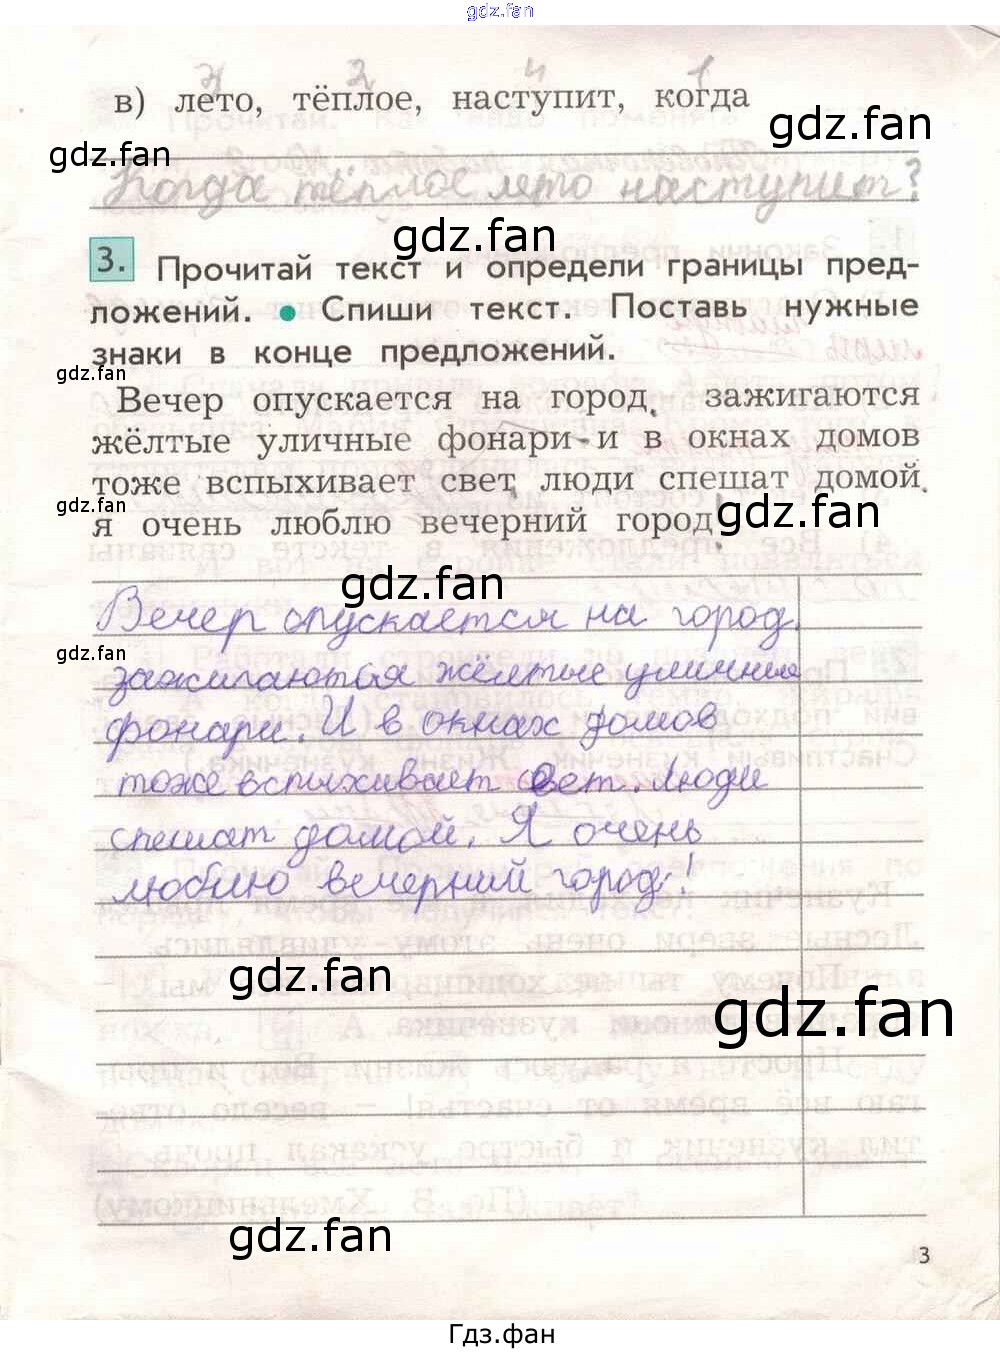 gdz.fan
3 2 4 1
в) лето, тёплое, наступит, когда
gdz.fan
gdz.fan
Когда тёплое лето наступит?
gdz.fan
3. Прочитай текст и определи границы пред-
ложений. ● Спиши текст. Поставь нужные
знаки в конце предложений.
gdz.fan
Вечер опускается на город. зажигаются
жёлтые уличные фонари и в окнах домов
тоже вспыхивает свет. люди спешат домой.
gdz.fan
gdz.fan
я очень люблю вечерний город!
gdz.fan
Вечер опускается на город,
gdz.fan
зажигаються жёлтые уличные
фонари. И в окнах домов
тоже вспыхивает свет. Люди
спешат домой. Я очень
люблю вечерний город!
gdz.fan
gdz.fan
gdz.fan
3
Гдз.фан